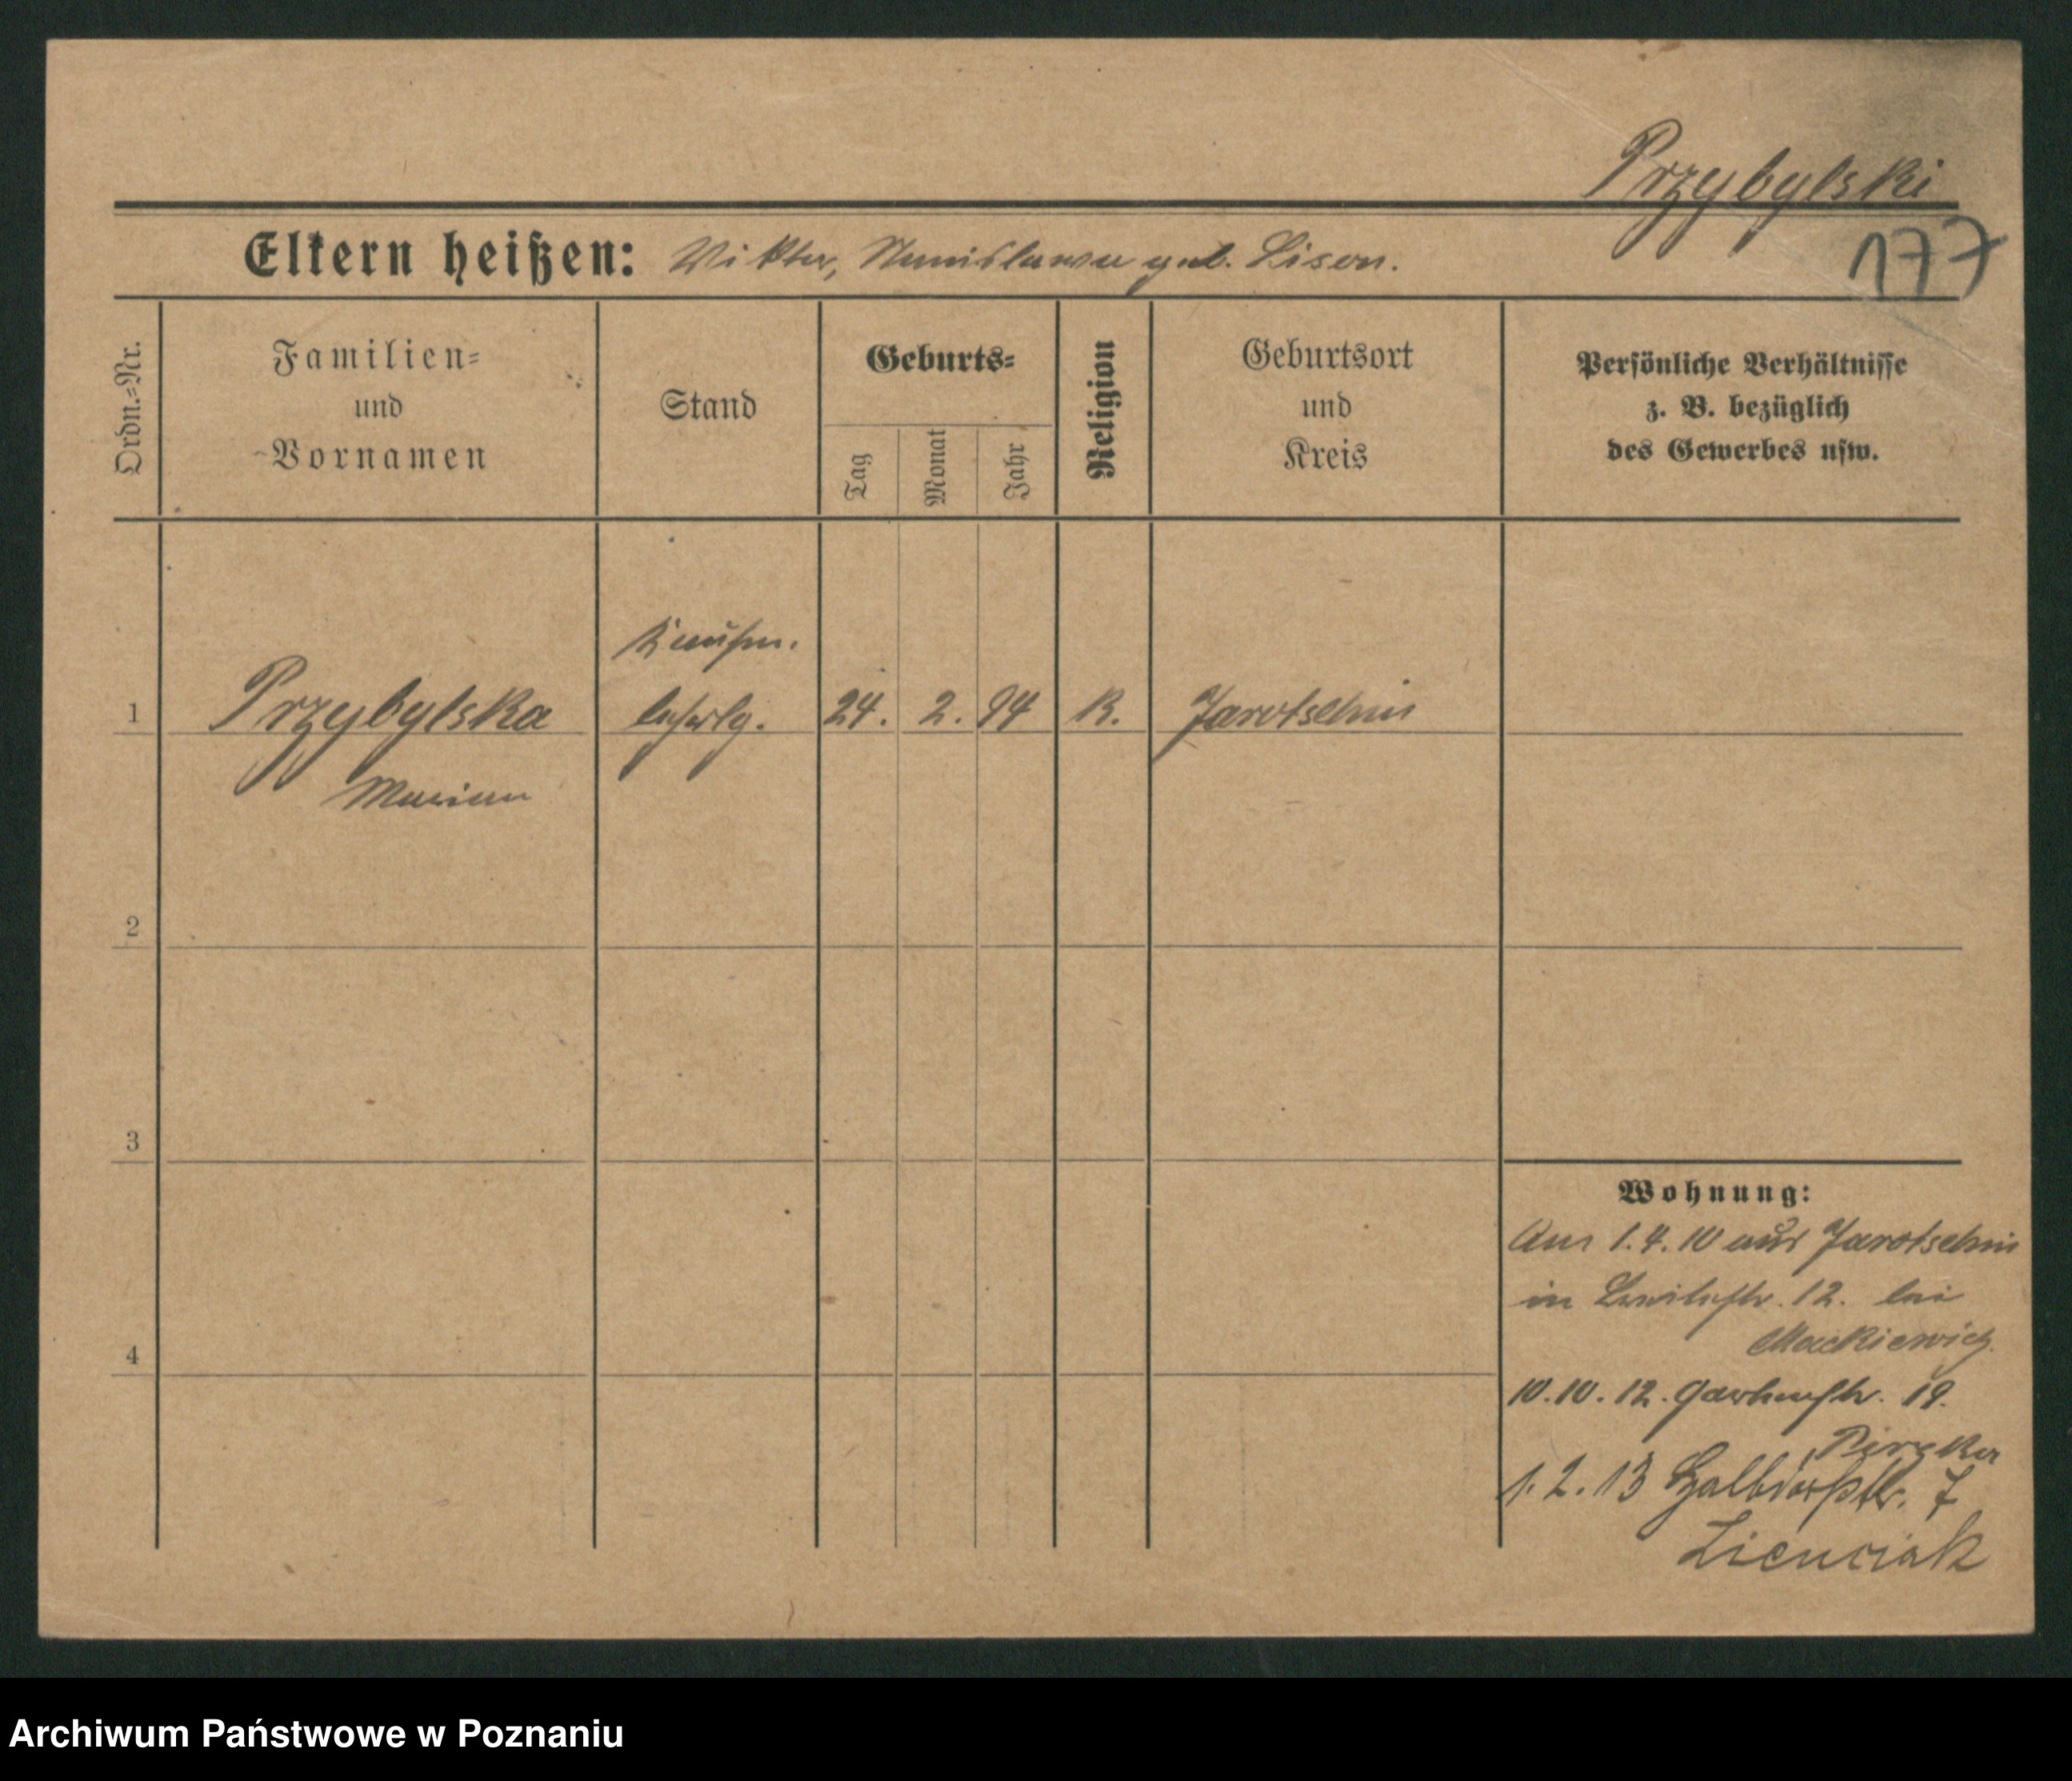 Przybylski
177
Eltern heißen: Viktor, Stanislawa geb. Lison.
Ordn.=Nr.
Familien=
und
Vornamen
Stand
Geburts=
Tag
Monat
Jahr
Religion
Geburtsort
und
Kreis
Persönliche Verhältnisse
z. B. bezüglich
des Gewerbes usw.
Kaufm.
1 Przybylska lehrlg. 24. 2. 94 K. Jarotschin
Marian
2
3
4
Wohnung:
Am 1.4.10 aus Jarotschin
in 12. bei
Mackiewicz.
10.10.12. Gartenstr. 19.
1.2.13 Halbdorfstr. 7